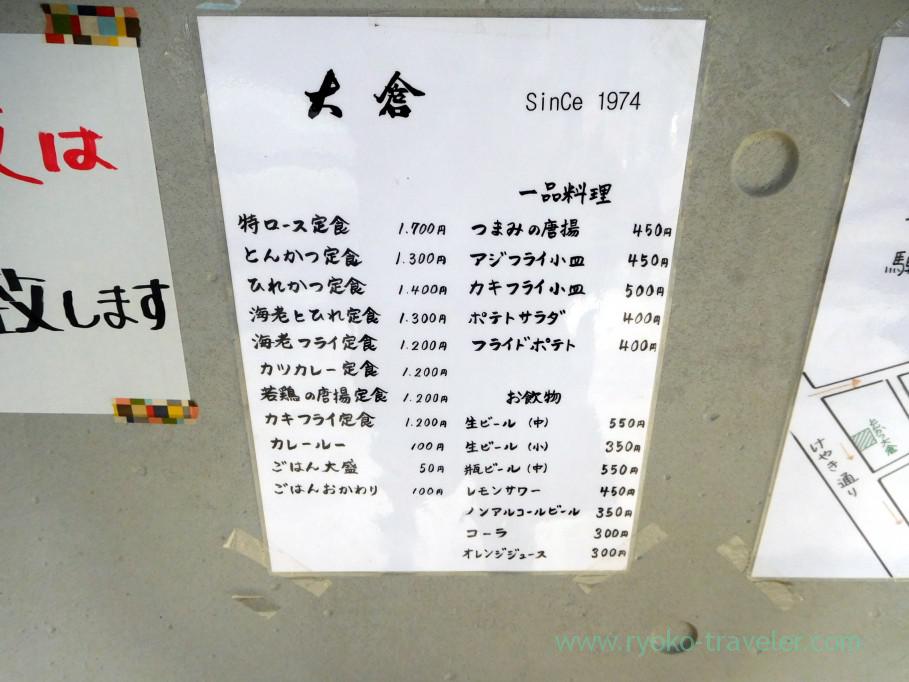 は
致します
大倉
SinCe 1974
特ロース定食 1.700円
とんかつ定食 1.300円
ひれかつ定食 1.400円
海老とひれ定食 1.300円
海老フライ定食 1.200円
カツカレー定食 1.200円
若鶏の唐揚定食 1.200円
カキフライ定食 1.200円
カレールー 100円
ごはん大盛 50円
ごはんおかわり 100円
一品料理
つまみの唐揚 450円
アジフライ小皿 450円
カキフライ小皿 500円
ポテトサラダ 400円
フライドポテト 400円
お飲物
生ビール (中) 550円
生ビール (小) 350円
瓶ビール (中) 550円
レモンサワー 450円
ノンアルコールビール 350円
コーラ 300円
オレンジジュース 300円
けやき通り
大倉
www.ryoko-traveler.com